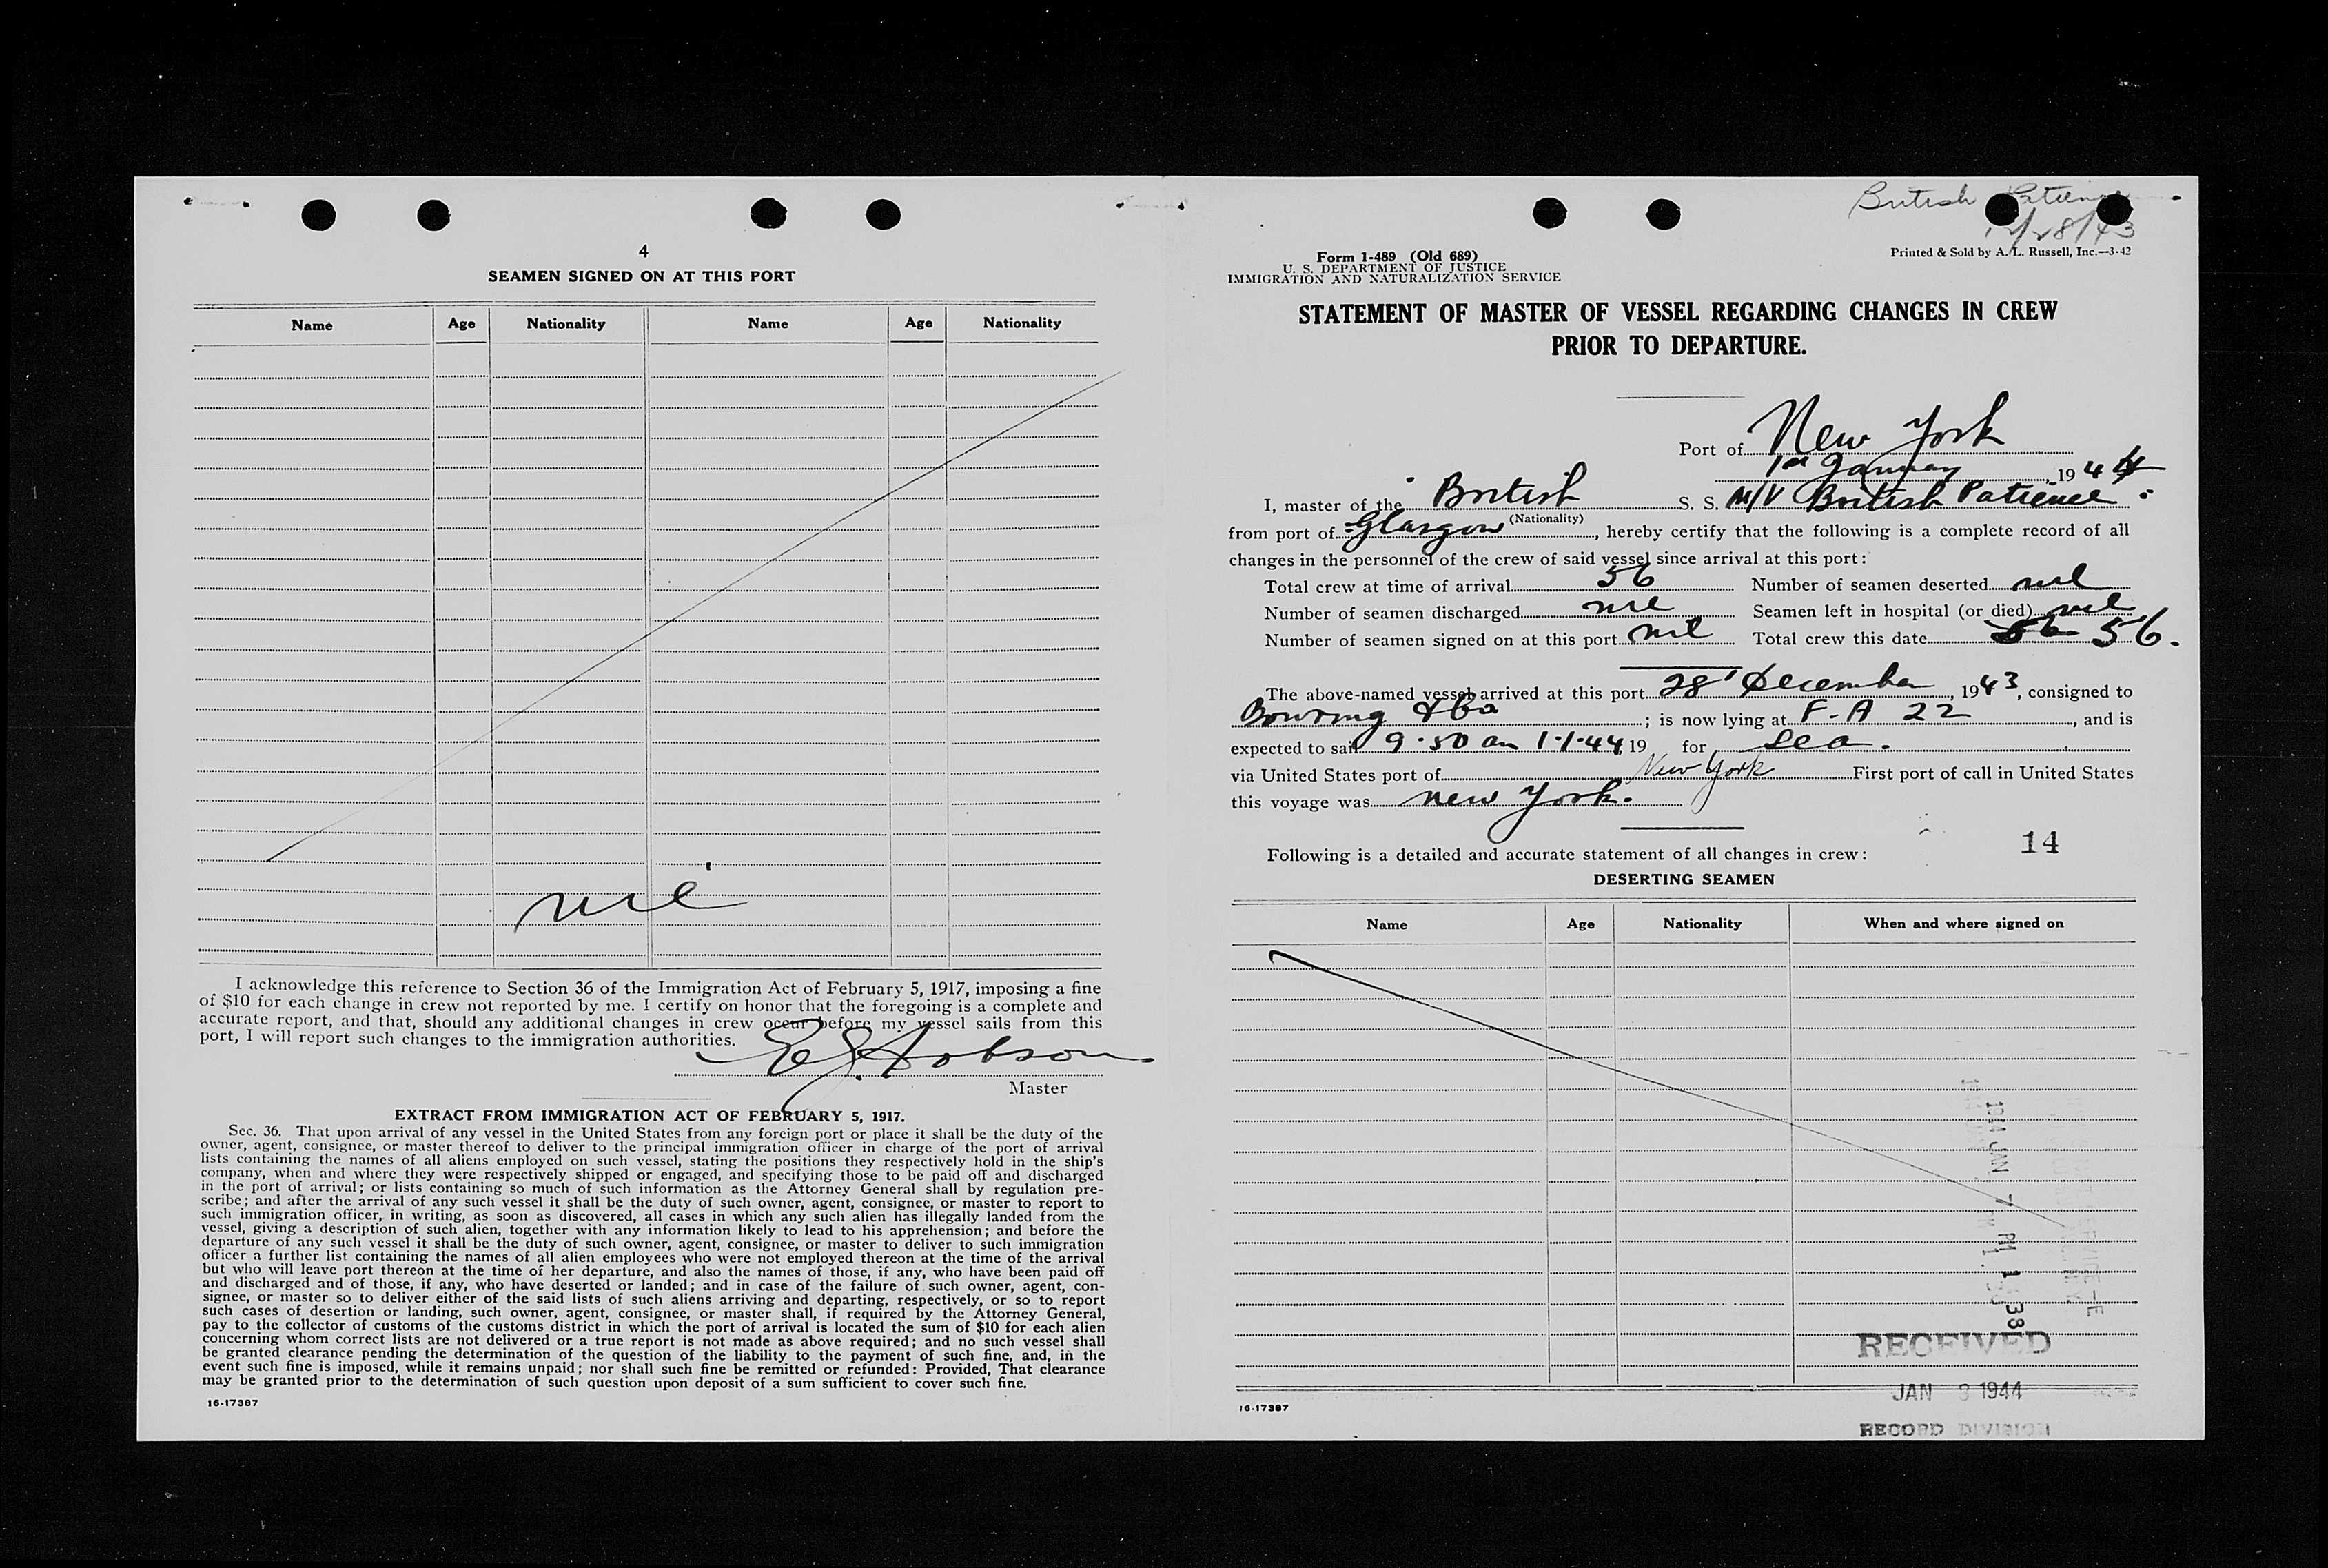 4
SEAMEN SIGNED ON AT THIS PORT
Name Age Nationality Name Age Nationality
nil
I acknowledge this reference to Section 36 of the Immigration Act of February 5, 1917, imposing a fine
of $10 for each change in crew not reported by me. I certify on honor that the foregoing is a complete and
accurate report, and that, should any additional changes in crew occur before my vessel sails from this
port, I will report such changes to the immigration authorities.
E J. Hobson
Master
EXTRACT FROM IMMIGRATION ACT OF FEBRUARY 5, 1917.
Sec. 36. That upon arrival of any vessel in the United States from any foreign port or place it shall be the duty of the
owner, agent, consignee, or master thereof to deliver to the principal immigration officer in charge of the port of arrival
lists containing the names of all aliens employed on such vessel, stating the positions they respectively hold in the ship's
company, when and where they were respectively shipped or engaged, and specifying those to be paid off and discharged
in the port of arrival; or lists containing so much of such information as the Attorney General shall by regulation pre-
scribe; and after the arrival of any such vessel it shall be the duty of such owner, agent, consignee, or master to report to
such immigration officer, in writing, as soon as discovered, all cases in which any such alien has illegally landed from the
vessel, giving a description of such alien, together with any information likely to lead to his apprehension; and before the
departure of any such vessel it shall be the duty of such owner, agent, consignee, or master to deliver to such immigration
officer a further list containing the names of all alien employees who were not employed thereon at the time of the arrival
but who will leave port thereon at the time of her departure, and also the names of those, if any, who have been paid off
and discharged and of those, if any, who have deserted or landed; and in case of the failure of such owner, agent, con-
signee, or master so to deliver either of the said lists of such aliens arriving and departing, respectively, or so to report
such cases of desertion or landing, such owner, agent, consignee, or master shall, if required by the Attorney General,
pay to the collector of customs of the customs district in which the port of arrival is located the sum of $10 for each alien
concerning whom correct lists are not delivered or a true report is not made as above required; and no such vessel shall
be granted clearance pending the determination of the question of the liability to the payment of such fine, and, in the
event such fine is imposed, while it remains unpaid; nor shall such fine be remitted or refunded: Provided, That clearance
may be granted prior to the determination of such question upon deposit of a sum sufficient to cover such fine.
16-17387
British Patience
12/28/43
Form 1-489 (Old 689)
U. S. DEPARTMENT OF JUSTICE
IMMIGRATION AND NATURALIZATION SERVICE
Printed & Sold by A. L. Russell, Inc.—3-42
STATEMENT OF MASTER OF VESSEL REGARDING CHANGES IN CREW
PRIOR TO DEPARTURE.
Port of New York
1st January, 1944
I, master of the British S. S. M/V British Patience
(Nationality)
from port of Glasgow, hereby certify that the following is a complete record of all
changes in the personnel of the crew of said vessel since arrival at this port:
Total crew at time of arrival 56 Number of seamen deserted nil
Number of seamen discharged nil Seamen left in hospital (or died) nil
Number of seamen signed on at this port nil Total crew this date 56 56.
The above-named vessel arrived at this port 28' December, 1943, consigned to
Bowring & Co; is now lying at F-A 22, and is
expected to sail 9.50 am 1.1.44 19 for Sea.
via United States port of New York First port of call in United States
this voyage was New York.
14
Following is a detailed and accurate statement of all changes in crew:
DESERTING SEAMEN
Name Age Nationality When and where signed on
1944 JAN 7 PM 1 38
RECEIVED
JAN 8 1944
RECORD DIVISION
16-17387